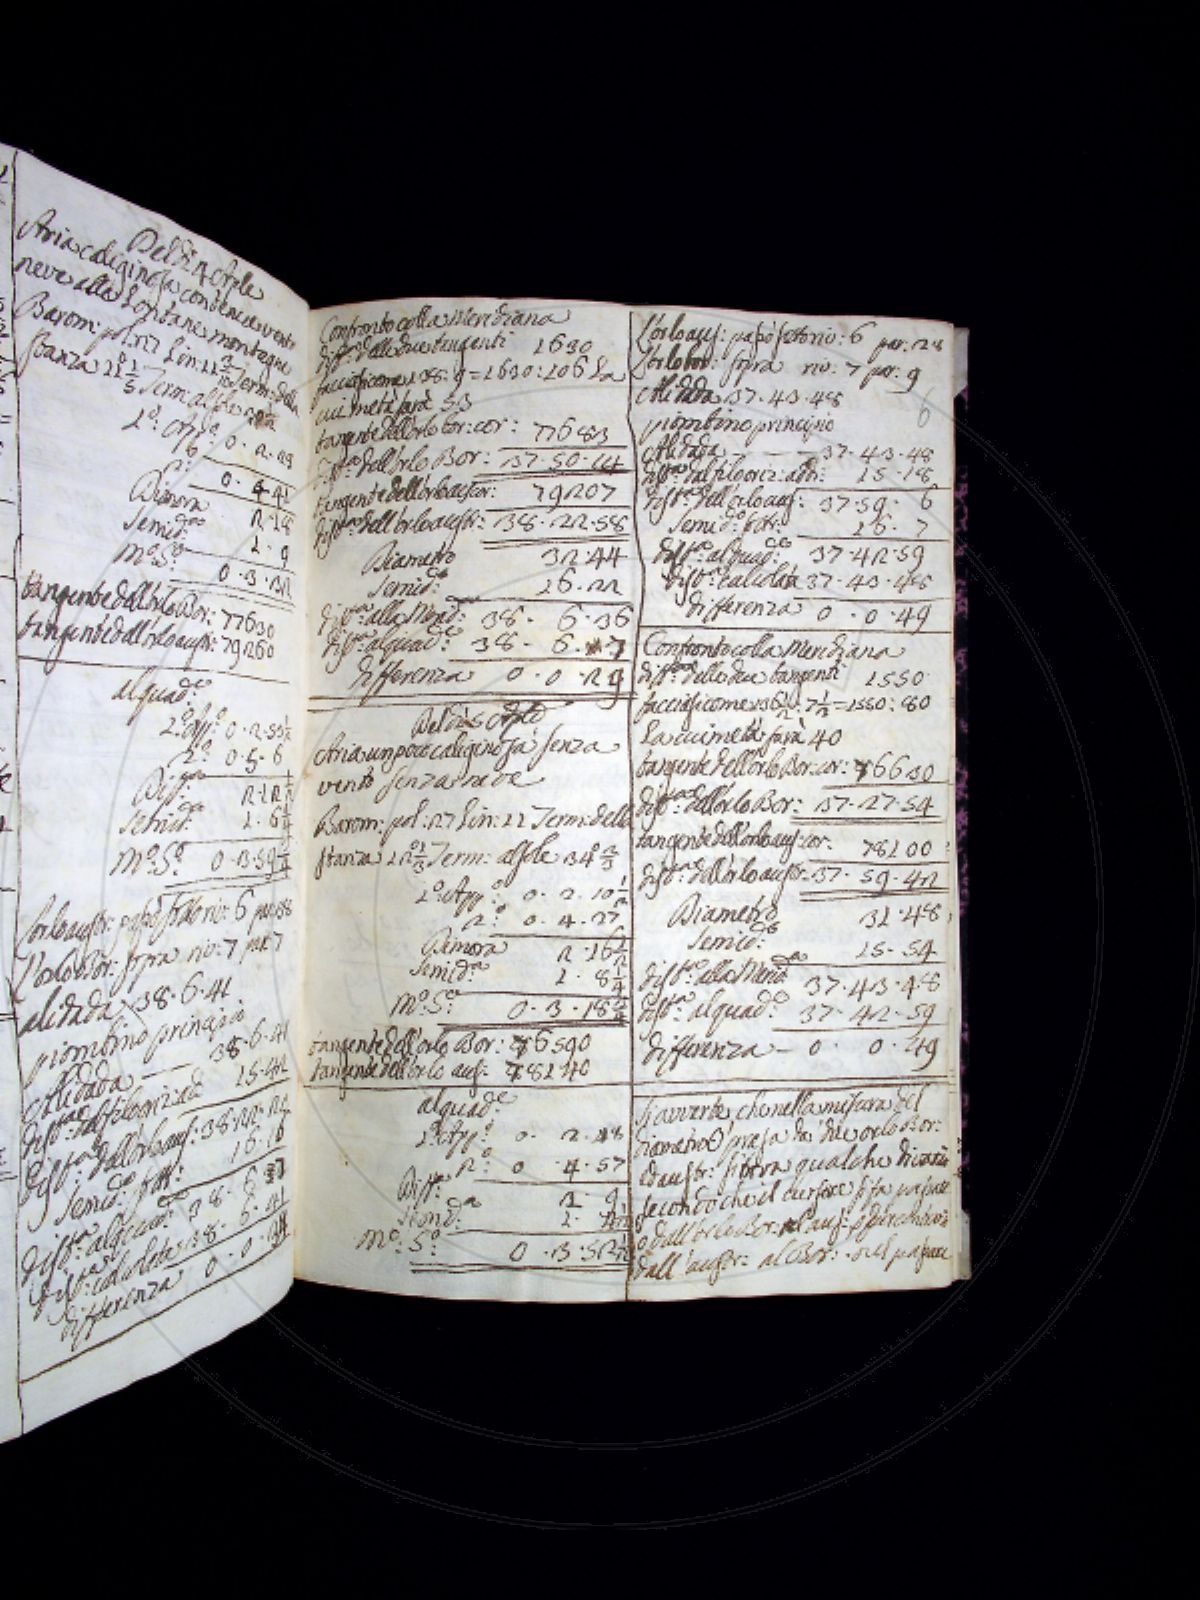 Del dì 14 Aple
Aria caliginosa con densa e vento
neve alle lontane montagne
Barom: pol: 27 Lin: 11 Term: della
stanza 11 1/5 Term: al sole
1º: App: 0. 2. 23
2º: 0. 4. 41
Dimora 2. 18
Semidª 1. 9
Mº: Sº: 0. 3. 32
tangente dell'orlo Bor: 77630
tangente dell'orlo austr: 79260
al quadᵗᵉ
1º: App: 0. 2.
2º: 0. 5. 6
Diffª
Semidª
Mº: Sº: 0. 3. 59
L'orlo austr: passò sotto rio: 6 par: 38
L'orlo Bor: sopra rio: 7 par: 7
alidada 38. 6. 41
piombino principio
Alidada 38. 6. 41
distª: dal filo oriz: ad: 15. 41
distª: dell'orlo aus: 38. 22.
Semidº: sottr: 16. 16
distª: al quadᵗᵉ 38. 6
distª: calcolata 38. 6. 41
differenza 0. 0. 34
Confronto colla Meridiana
diffª: dalle due tangenti 1630
facciasi come 138: 9 = 1630: 106 La
cui metà sarà 53
tangente dell'orlo bor: cor: 77683
distª: dell'orlo Bor: 37. 50. 14
tangente dell'orlo aus: cor: 79207
distª: dell'orlo austr: 38. 22. 58
Diametro 32. 44
Semidº: 16. 22
distª: alla Merid: 38. 6. 36
distª: al quadᵗᵉ 38. 6. 7
differenza 0. 0. 29
Del dì 15 Aple
Aria un poco caliginosa senza
vento senza neve
Barom: pol: 27 Lin: 11 Term: della
stanza 12 1/3 Term: al sole 34 2/3
1º: App: 0. 2. 10 1/2
2º: 0. 4. 27
Dimora 2. 16 1/2
Semidª: 1. 8 1/4
Mº: Sº: 0. 3. 18 3/4
tangente dell'orlo Bor: 76590
tangente dell'orlo aus: 78140
al quadᵗᵉ
1º: App: 0. 2. 48
2º: 0. 4. 57
Diffª: 2. 9
Semidª: 1.
Mº: Sº: 0. 3. 52
L'orlo aus: passò sotto rio: 6 par: 28
L'orlo bor: sopra rio: 7 par: 9
Alidada 37. 43. 48
piombino principio
6
Alidada 37. 43. 48
distª: dal filo oriz: add: 15. 18
distª: dell'orlo aus: 37. 59. 6
semidº: sottr: 16. 7
distª: al quadᵗᵉ 37. 42. 59
distª: calcolata 37. 43. 48
differenza 0. 0. 49
Confronto colla Meridiana
diffª: delle due tangenti 1550
facciasi come 136 1/2: 7 1/2 = 1550: 80
La cui metà sarà 40
tangente dell'orlo Bor: cor: 76630
distª: dell'orlo Bor: 37. 27. 54
tangente dell'orlo aus: cor: 78100
distª: dell'orlo austr: 37. 59. 42
Diametro 31. 48
Semidº: 15. 54
distª: alla Merid: 37. 43. 48
distª: al quadᵗᵉ: 37. 42. 59
differenza - 0. 0. 49
Si avverte, che nella misura del
diametro presa da' due orlo Bor:
ed austr: si trova qualche
secondo che il cursore si fa passare
o dall'orlo Bor: al aus: o per contrario
dall'austr: al Bor: nel passare